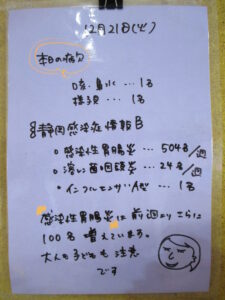 12月21日(火)
本日の病欠
咳・鼻水…1名
様子…1名
静岡感染症情報
感染性胃腸炎…504名/週
溶レン菌咽頭炎…24名/週
インフルエンザA型…1名
感染性胃腸炎は前週よりさらに
100名増えています。
大人も子どもも注意
です